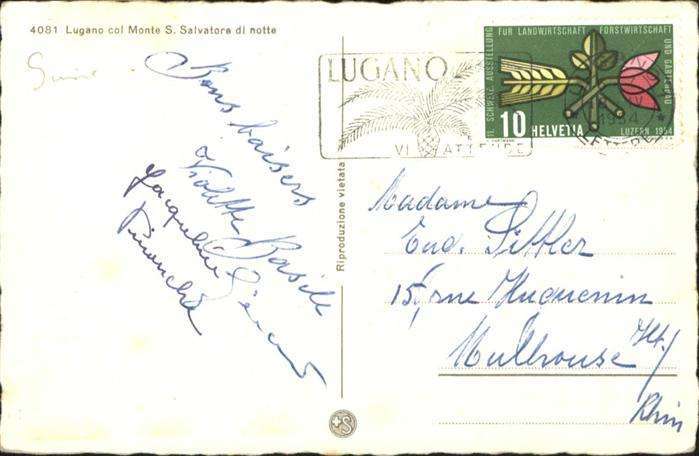 4081 Lugano col Monte S. Salvatore di notte
Suisse
Bons baisers
Violette Basile
Jacqueline Gérard
Riproduzione vietata
S
LUGANO
VI ATTENDE
11. SCHWEIZ. AUSSTELLUNG
FÜR LANDWIRTSCHAFT FORSTWIRTSCHAFT
UND GARTENBAU
10 HELVETIA LUZERN 1954
1954
Madame
Eug. Sittler
15, rue Huguenin
Mulhouse
Ht/
Rhin